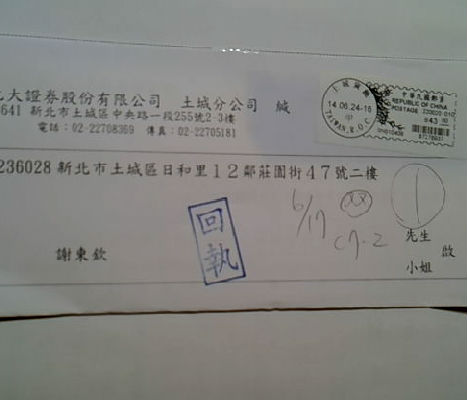 大證券股份有限公司 土城分公司 緘
641 新北市土城區中央路一段255號2-3樓
電話：02-22708369 傳真：02-22705181
土城郵局
14.06.24-16
TAIWAN, R.O.C.
中華民國郵票
REPUBLIC OF CHINA
POSTAGE
236028 新北市土城區日和里12鄰莊園街47號二樓
謝東欽
回執
6/17
XX
C7-2
先生
小姐
啟